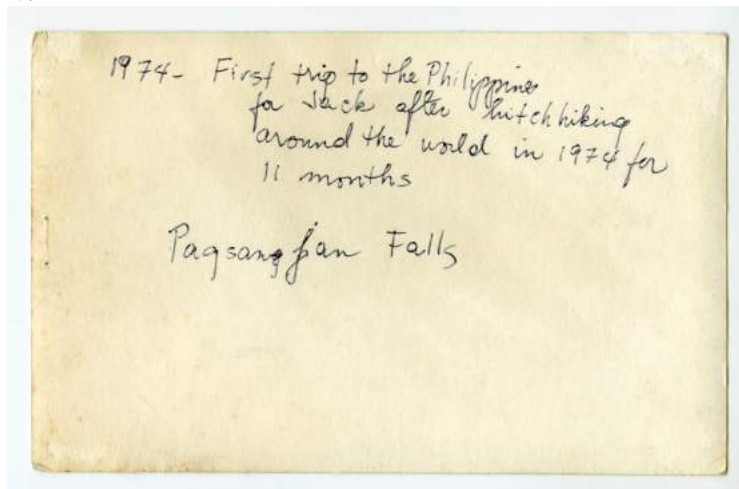 1974- First trip to the Philippines
for Jack after hitchhiking
around the world in 1974 for
11 months
Pagsangjan Falls